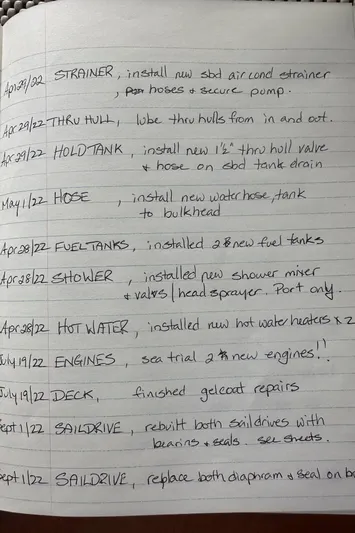 Apr29/22 STRAINER, install new sbd air cond strainer
, hoses & secure pump.
Apr 29/22 THRU HULL, lube thru hulls from in and out.
Apr 29/22 HOLDTANK, install new 1½" thru hull valve
& hose on sbd tank drain
May 1/22 HOSE , install new water hose, tank
to bulkhead
Apr28/22 FUELTANKS, installed 2 new fuel tanks
Apr28/22 SHOWER , installed new shower mixer
& valvs / head sprayer. Port only.
Apr28/22 HOT WATER, installed new hot water heaters x 2
July 19/22 ENGINES, sea trial 2 new engines!!
July 19/22 DECK, finished gelcoat repairs
Sept 1/22 SAILDRIVE, rebuilt both saildrives with
bearins & seals. see sheets.
Sept 1/22 SAILDRIVE, replace both diaphram & seal on